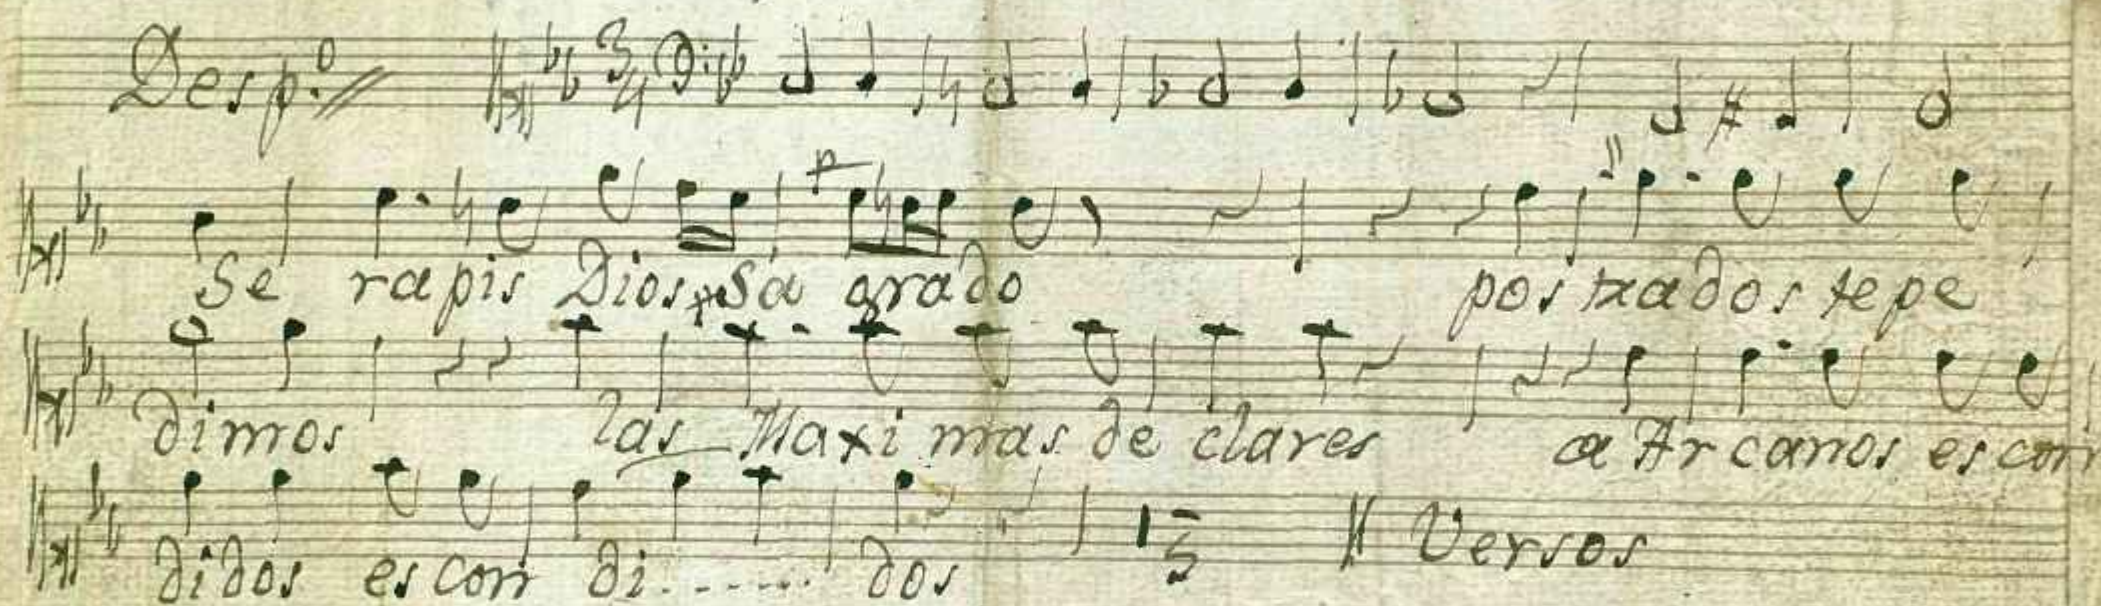 Desp.º
Se rapis Dios Sa grado postrados tepe
dimos las Maximas de clares a Arcanos es con
didos es con di....... dos 5 Versos